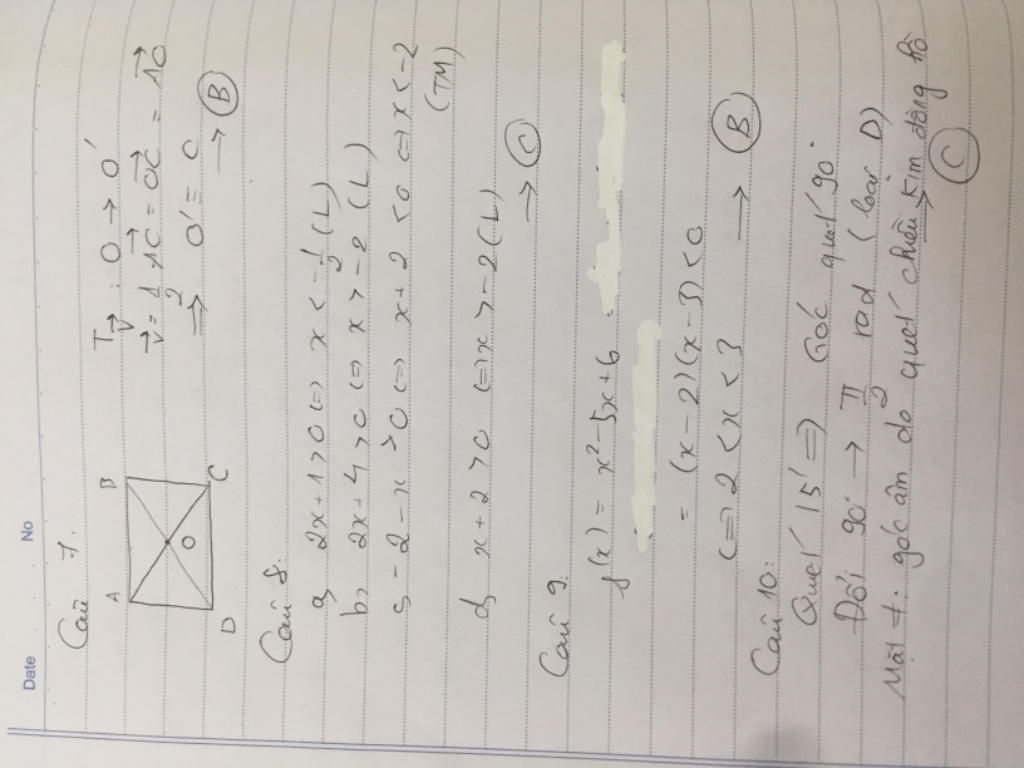 Date No
Câu 7.
A B
O
D C
T_v⃗ : O → O'
v⃗ = 1/2 AC⃗ = OC⃗ = AO⃗
⇒ O' ≡ C
→ B
Câu 8:
a, 2x + 1 > 0 ⇔ x < -1/2 (L)
b, 2x + 4 > 0 ⇔ x > -2 (L)
c, -2 - x > 0 ⇔ x + 2 < 0 ⇔ x < -2
(TM)
d, x + 2 > 0 ⇔ x > -2 (L)
→ C
Câu 9:
f(x) = x² - 5x + 6
= (x - 2)(x - 3) < 0
⇔ 2 < x < 3 → B
Câu 10:
Quét 15' ⇒ Góc quét 90°
Đổi 90° → π/2 rad (loại D)
Mặt ≠. góc âm do quét chiều kim đồng hồ
→ C